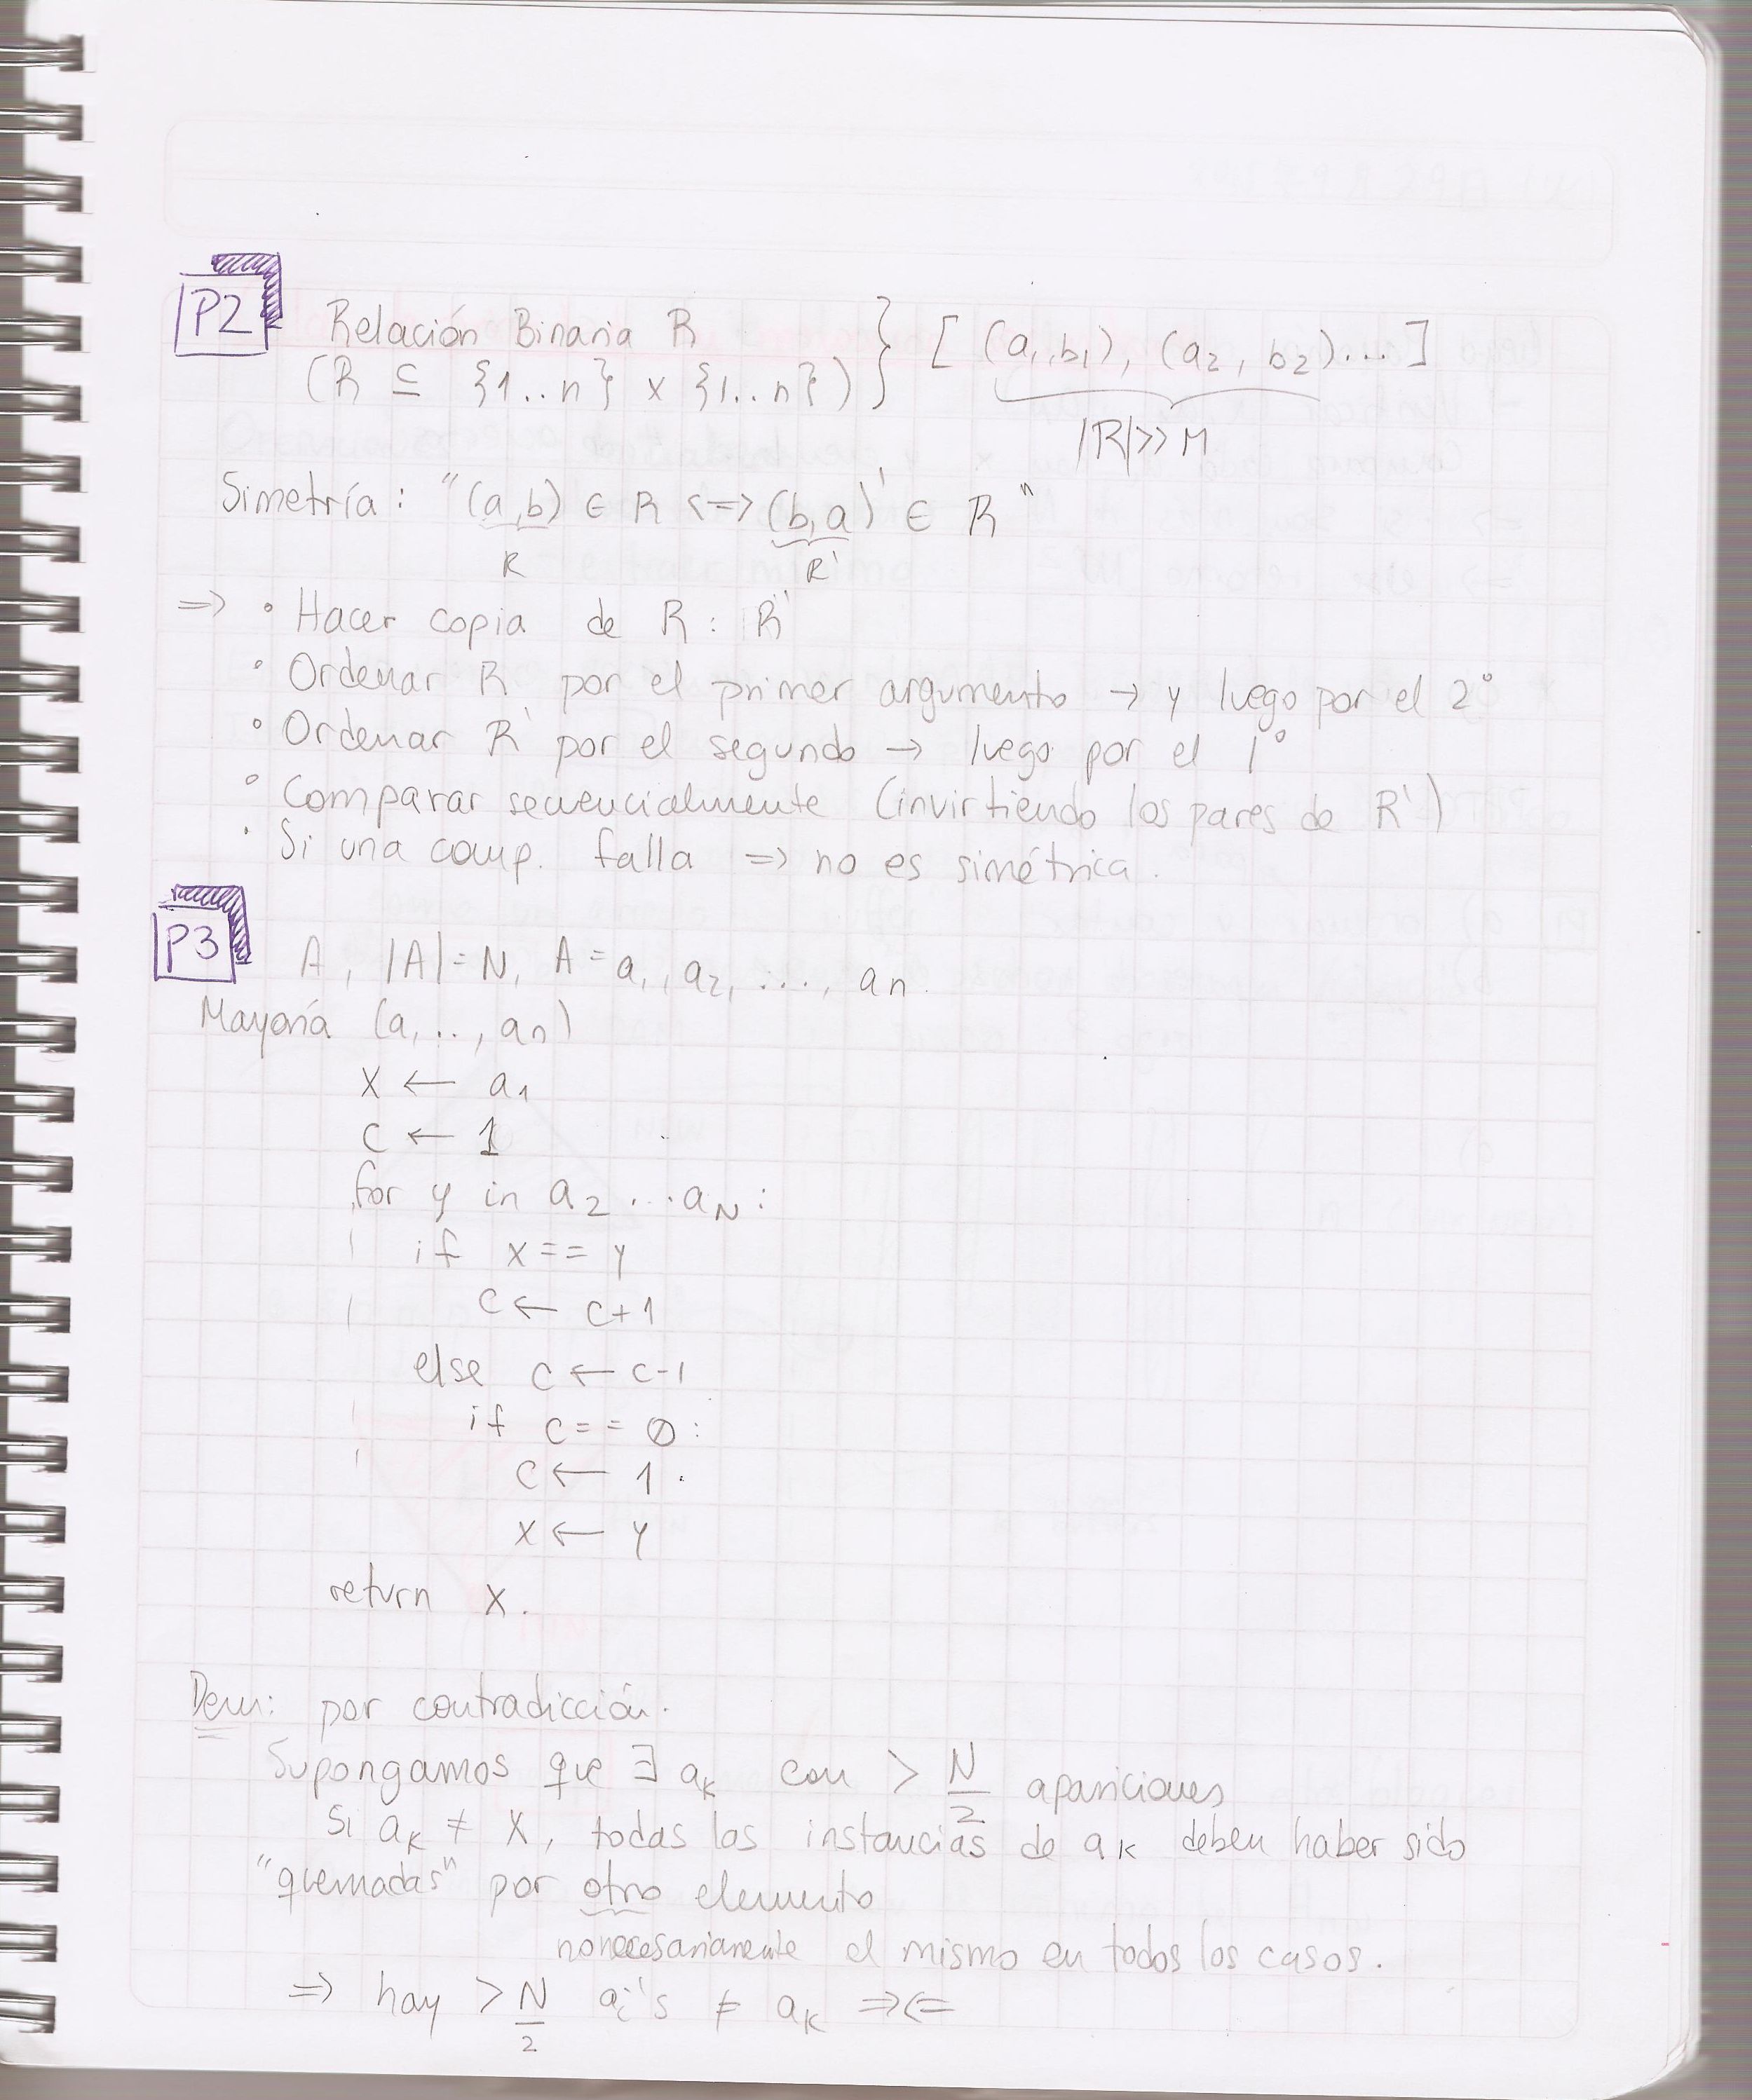 P2 Relación Binaria R } [ (a1,b1), (a2, b2)... ]
(R ⊆ {1..n} x {1..n}) |R| >> M
Simetría: "(a,b) ∈ R <=> (b,a) ∈ R"
R R'
=> • Hacer copia de R: R'
• Ordenar R por el primer argumento → y luego por el 2°
• Ordenar R' por el segundo → luego por el 1°
• Comparar secuencialmente (invirtiendo los pares de R')
• Si una comp. falla => no es simétrica.
P3 A, |A| = N, A = a1, a2, ..., an.
Mayoría (a, .., an)
x ← a1
c ← 1
for y in a2 ... aN:
if x == y
c ← c+1
else c ← c-1
if c == 0:
c ← 1.
x ← y
return x.
Dem: por contradicción.
Supongamos que ∃ ak con > N/2 apariciones
Si ak ≠ x, todas las instancias de ak deben haber sido
"quemadas" por otro elemento
no necesariamente el mismo en todos los casos.
=> hay > N/2 ai's ≠ ak =><=